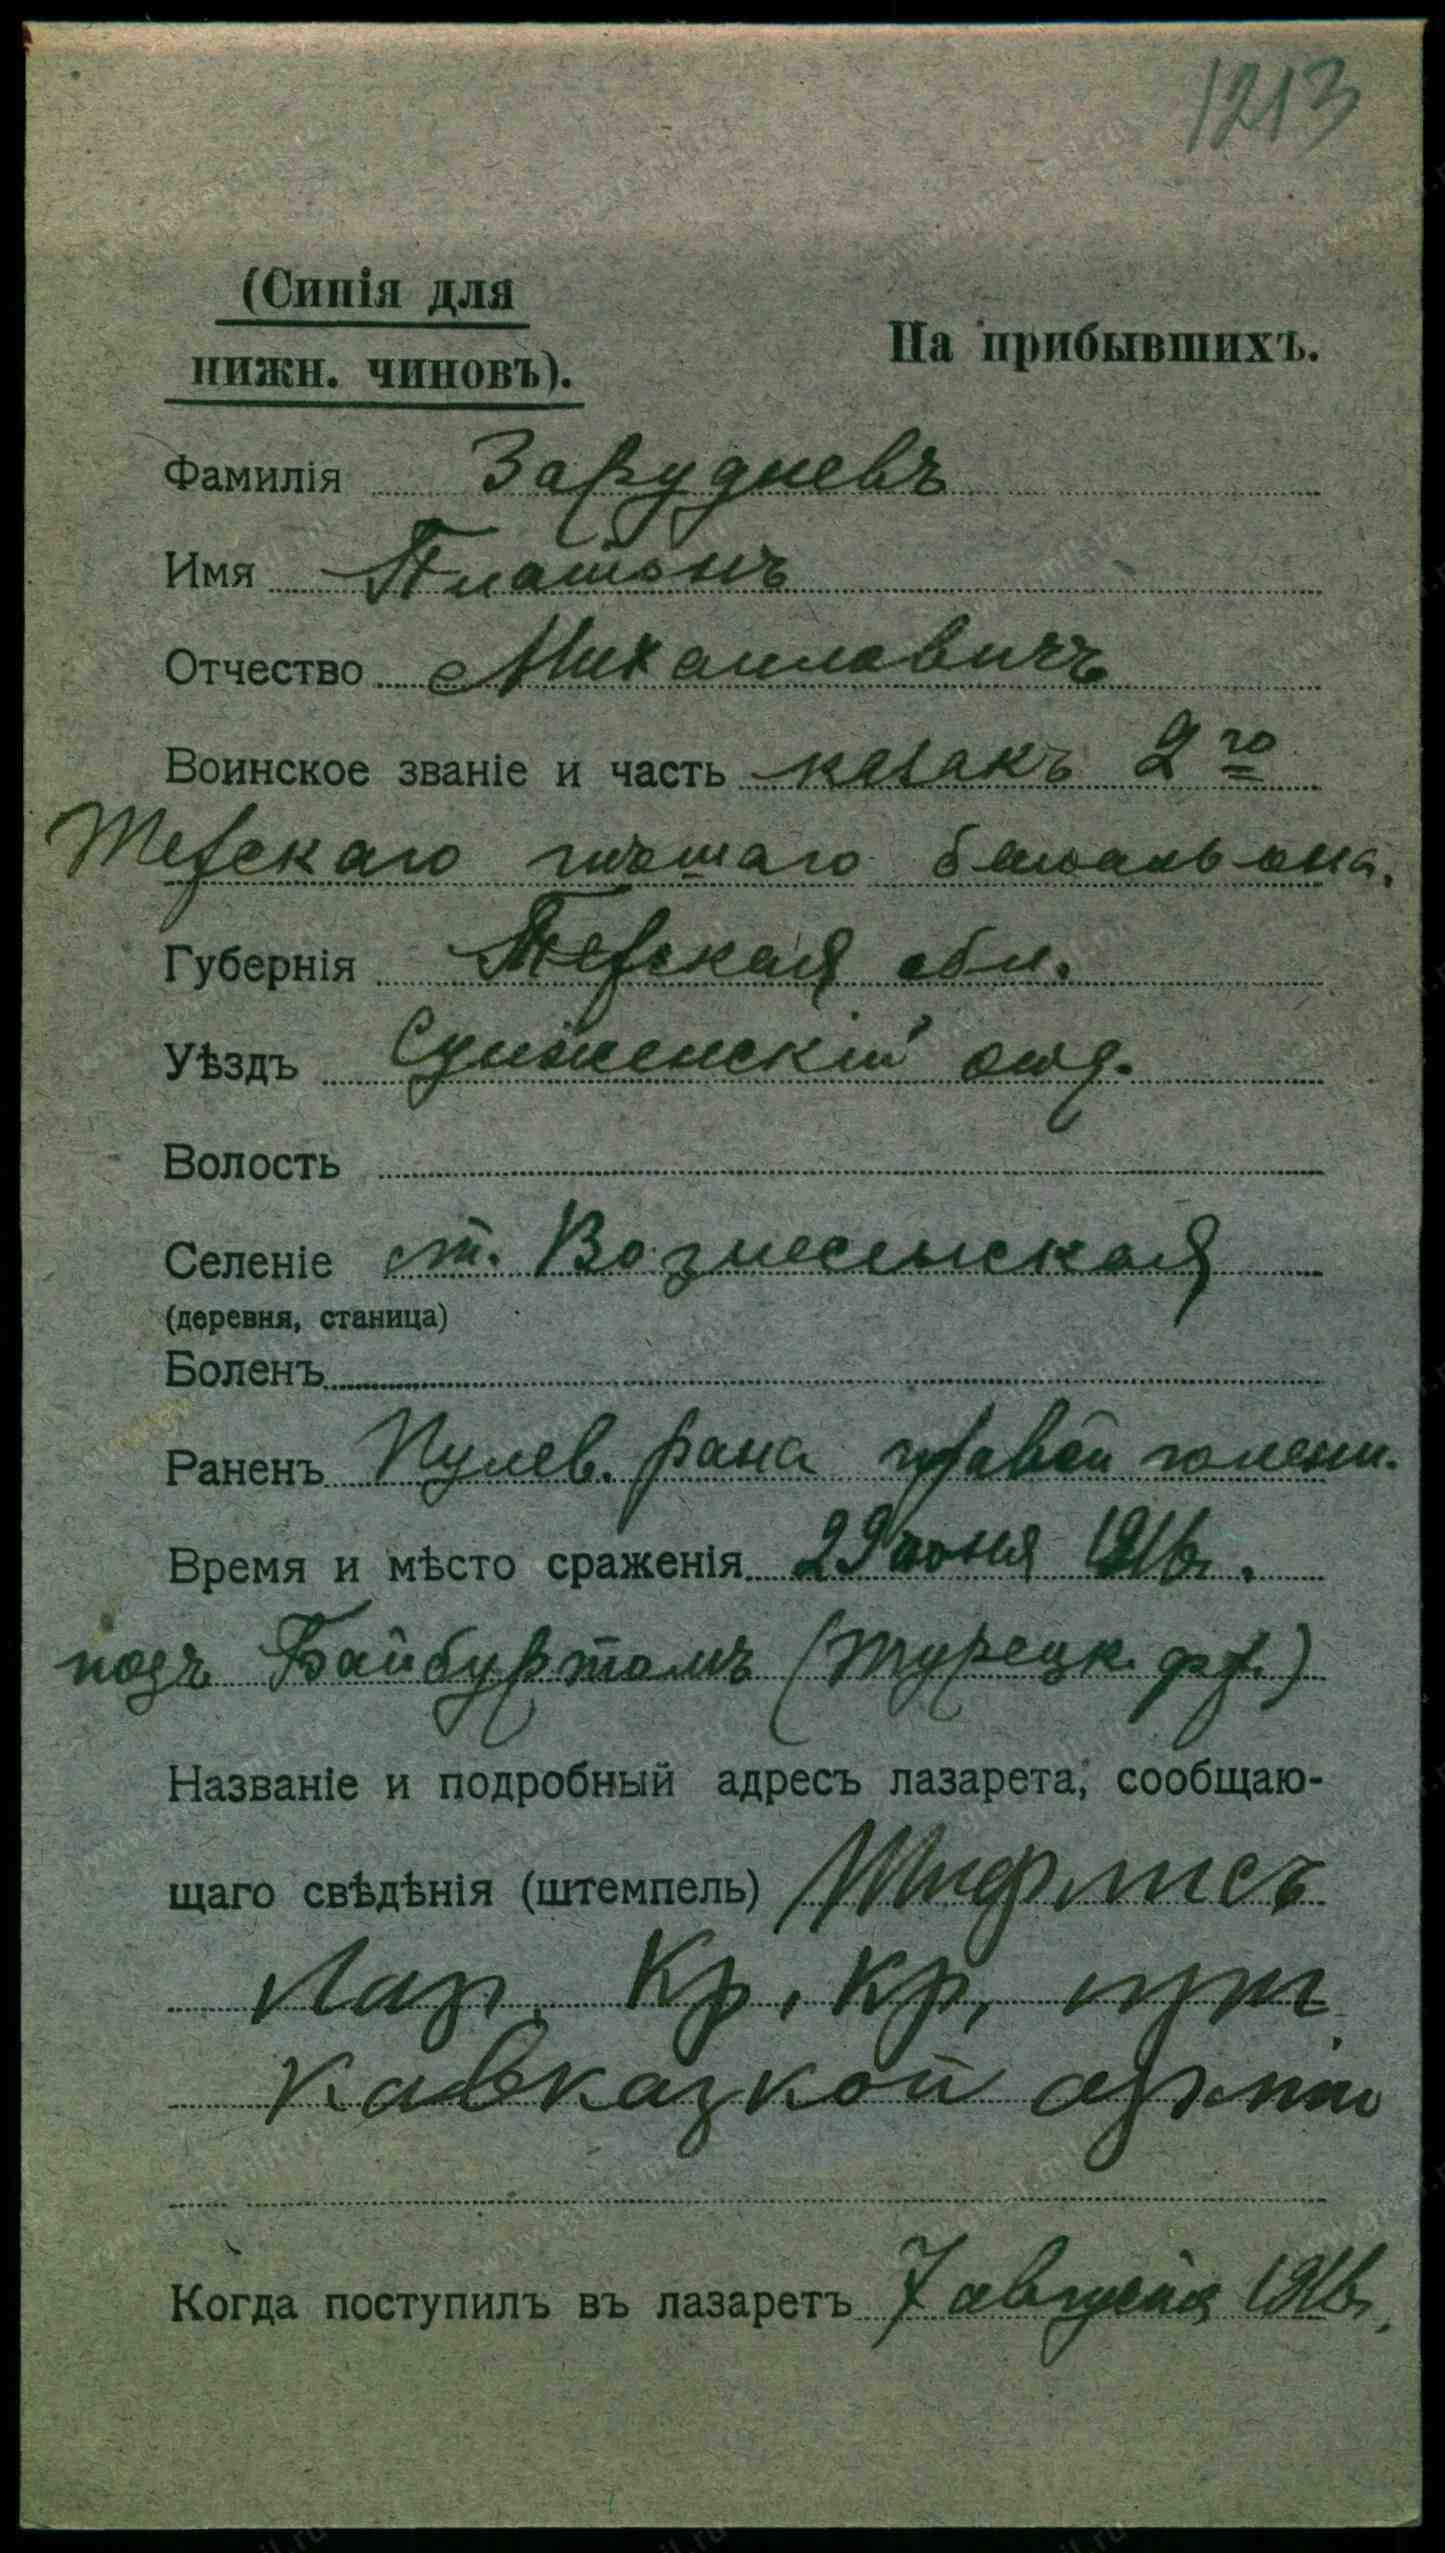 1213
(Синія для
нижн. чиновъ).
На прибывшихъ.
Фамилія Зарудневъ
Имя Платонъ
Отчество Михаиловичъ
Воинское званіе и часть казакъ 2го
Терскаго пѣшаго батальона.
Губернія Терская обл.
Уѣздъ Сунженскій отд.
Волость
Селеніе ст. Вознесенская
(деревня, станица)
Боленъ
Раненъ Пулев. рана правой голени.
Время и мѣсто сраженія 29 іюня 1916г.
подъ Байбуртомъ (Турецк. фр.)
Названіе и подробный адресъ лазарета, сообщаю-
щаго свѣдѣнія (штемпель) Тифлисъ
Лаз. Кр. Кр. при
Кавказкой арміи
Когда поступилъ въ лазаретъ 7 августа 1916г.